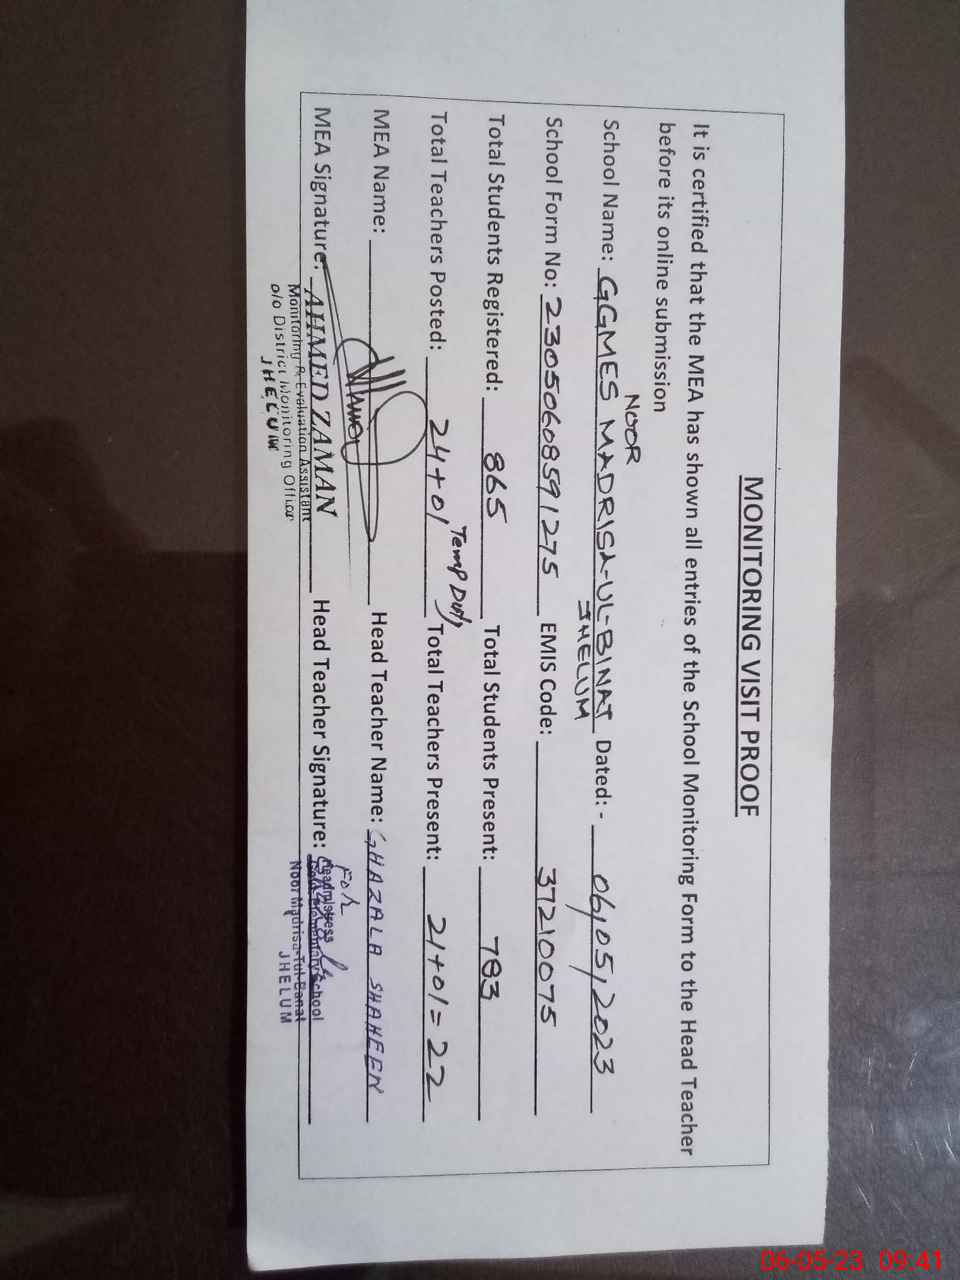 MONITORING VISIT PROOF
It is certified that the MEA has shown all entries of the School Monitoring Form to the Head Teacher
before its online submission
NOOR
School Name: GGMES MADRISA-UL-BINAT Dated: - 06/05/2023
JHELUM
School Form No: 23050608591275 EMIS Code: 37210075
Total Students Registered: 865 Total Students Present: 783
Temp Duty
Total Teachers Posted: 24+01 Total Teachers Present: 21+01=22
MEA Name: Head Teacher Name: GHAZALA SHAHEEN
For
MEA Signature: AHMED ZAMAN Head Teacher Signature:
Monitoring & Evaluation Assistant
o/o District Monitoring Officer
JHELUM
Headmistress
Govt. Elementary School
Noor Madrisa-Tul-Banat
JHELUM
06-05-23 09:41